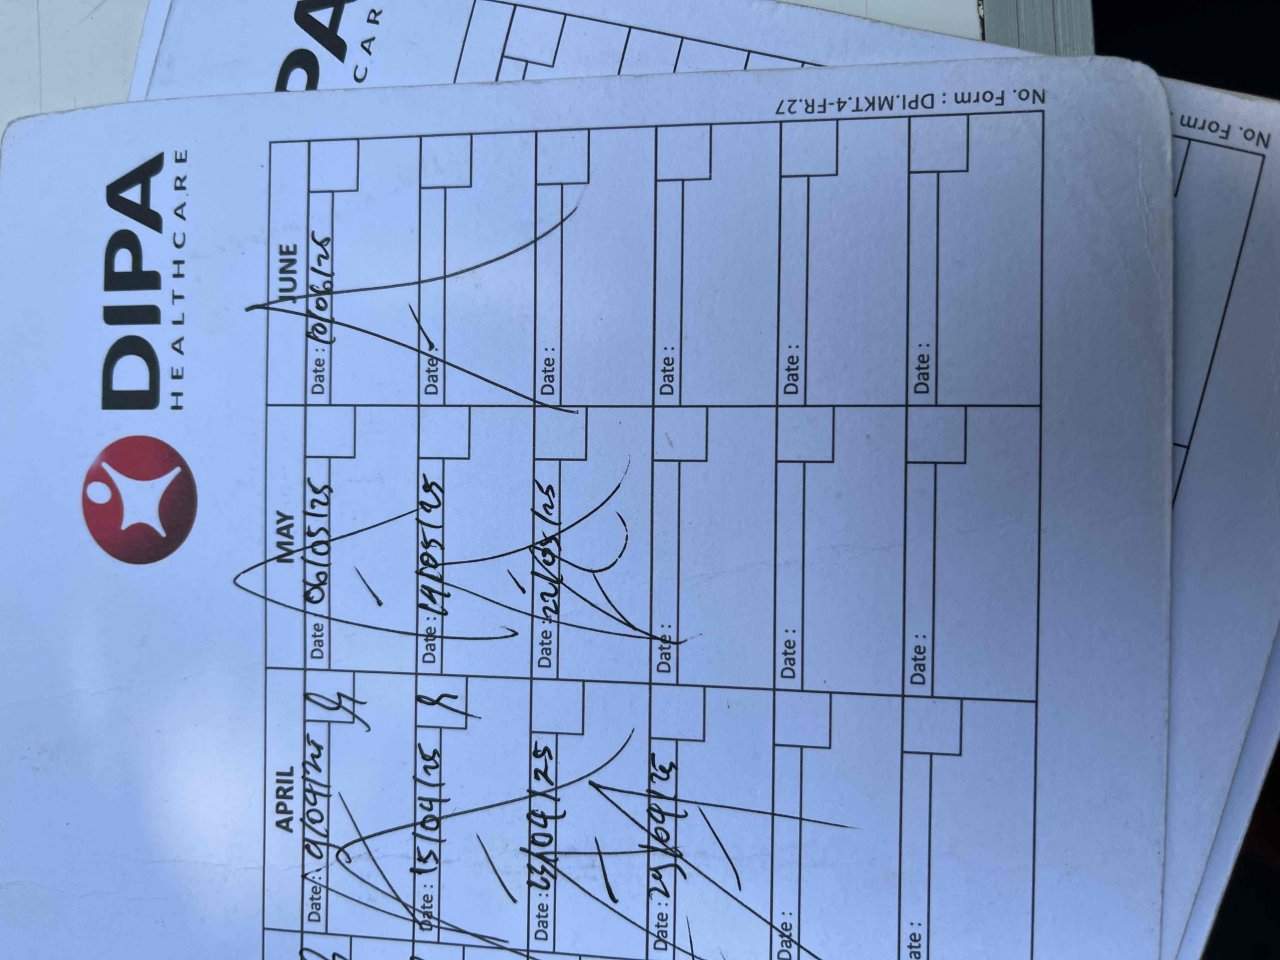 DIPA
HEALTHCARE
No. Form : DPI.MKT.4-FR.27
APRIL
MAY
JUNE
Date : 9/04/25
Date : 06/05/25
Date : 10/06/25
Date : 15/04/25
Date : 14/05/25
Date :
Date : 23/04/25
Date : 22/05/25
Date :
Date : 29/04/25
Date :
Date :
Date :
Date :
Date :
ate :
Date :
Date :
PA
CAR
No. Form